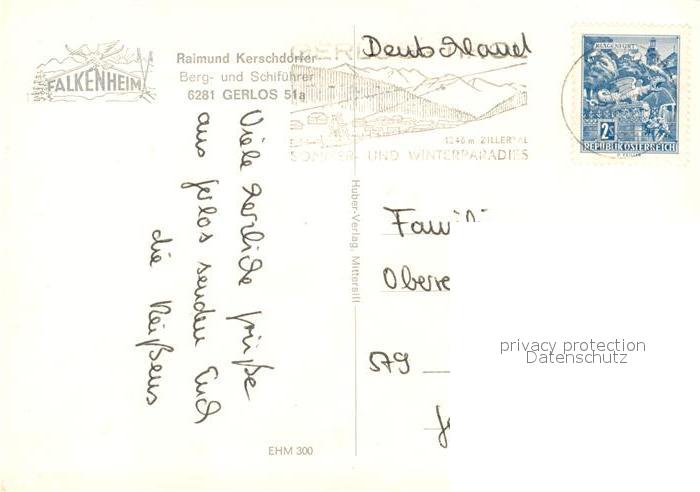 FALKENHEIM
Raimund Kerschdorfer
Berg- und Schiführer
6281 GERLOS 51a
Viele herzliche Grüße
aus Gerlos senden Euch
die
EHM 300
Huber-Verlag, Mittersill
GERLOS
1246 m ZILLERTAL
SOMMER- UND WINTERPARADIES
KLAGENFURT
2S
REPUBLIK ÖSTERREICH
Deutschland
579
privacy protection
Datenschutz